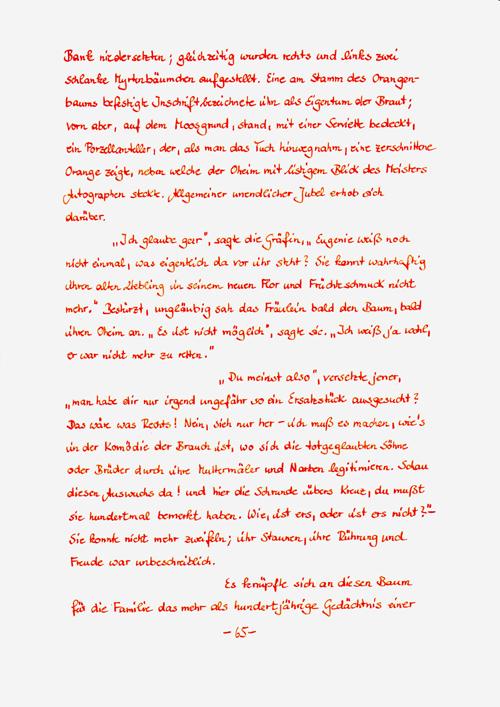 Bank niedersetzten; gleichzeitig wurden rechts und links zwei
schlanke Myrtenbäumchen aufgestellt. Eine am Stamm des Orangen-
baums befestigte Inschrift bezeichnete ihn als Eigentum der Braut;
vorn aber, auf dem Moosgrund, stand, mit einer Serviette bedeckt,
ein Porzellanteller, der, als man das Tuch hinwegnahm, eine zerschnittene
Orange zeigte, neben welche der Oheim mit listigem Blick des Meisters
Autographen steckte. Allgemeiner unendlicher Jubel erhob sich
darüber.
„Ich glaube gar", sagte die Gräfin, „Eugenie weiß noch
nicht einmal, was eigentlich da vor ihr steht? Sie kennt wahrhaftig
ihren alten Liebling in seinem neuen Flor und Früchteschmuck nicht
mehr." Bestürzt, ungläubig sah das Fräulein bald den Baum, bald
ihren Oheim an. „Es ist nicht möglich", sagte sie. „Ich weiß ja wohl,
er war nicht mehr zu retten."
„Du meinst also", versetzte jener,
„man habe dir nur irgend ungefähr so ein Ersatzstück ausgesucht?
Das wäre was Rechts! Nein, sieh nur her - ich muß es machen, wie's
in der Komödie der Brauch ist, wo sich die totgeglaubten Söhne
oder Brüder durch ihre Muttermäler und Narben legitimieren. Schau
diesen Auswuchs da! und hier die Schrunde übers Kreuz, du mußt
sie hundertmal bemerkt haben. Wie, ist ers, oder ist ers nicht?"-
Sie konnte nicht mehr zweifeln; ihr Staunen, ihre Rührung und
Freude war unbeschreiblich.
Es knüpfte sich an diesen Baum
für die Familie das mehr als hundertjährige Gedächtnis einer
- 65 -